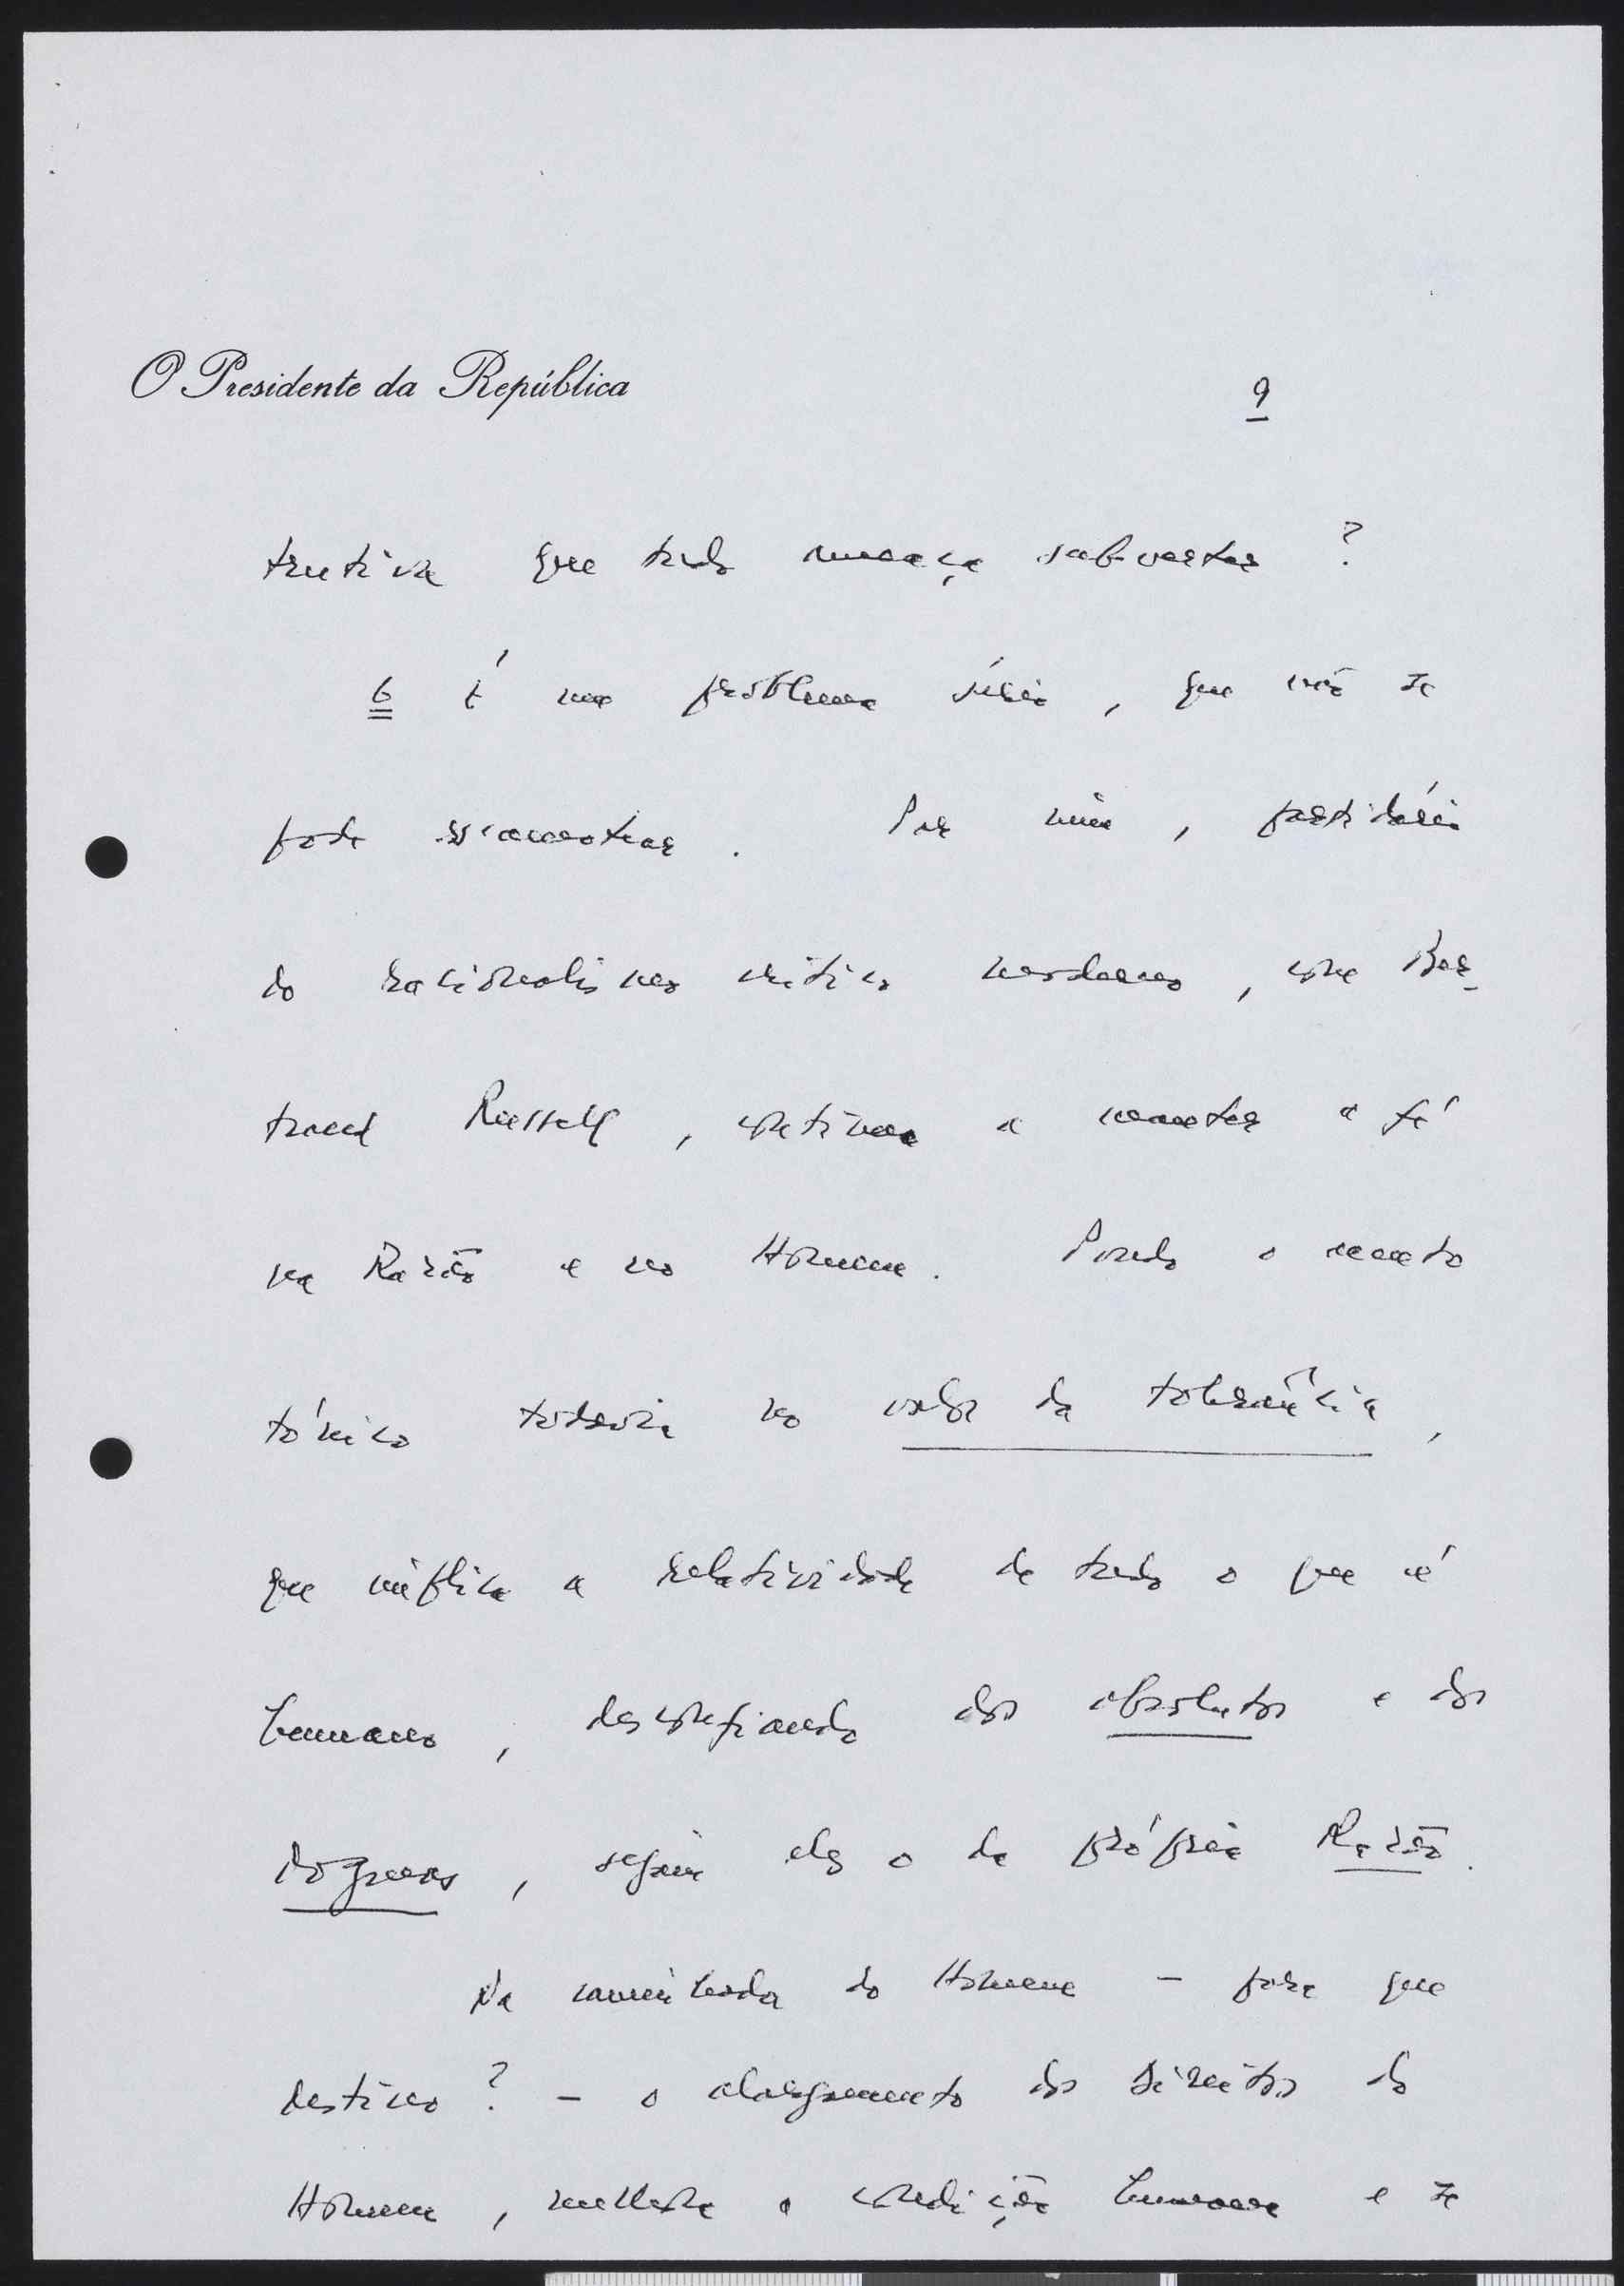 O Presidente da República
9
trutiva que tudo ameaça subverter ?
6 É um problema sério, que não se
pode escamotear. Por mim, partidário
do racionalismo crítico moderno, com Ber-
trand Russell, continuo a manter a fé
na Razão e no Homem. Pondo o acento
tónico todavia no valor da tolerância,
que implica a relatividade de tudo o que é
humano, desconfiando dos absolutos e dos
dogmas, sejam eles o da própria Razão.
Na caminhada do Homem - para que
destino ? - o alargamento dos direitos do
Homem, melhora a condição humana e se